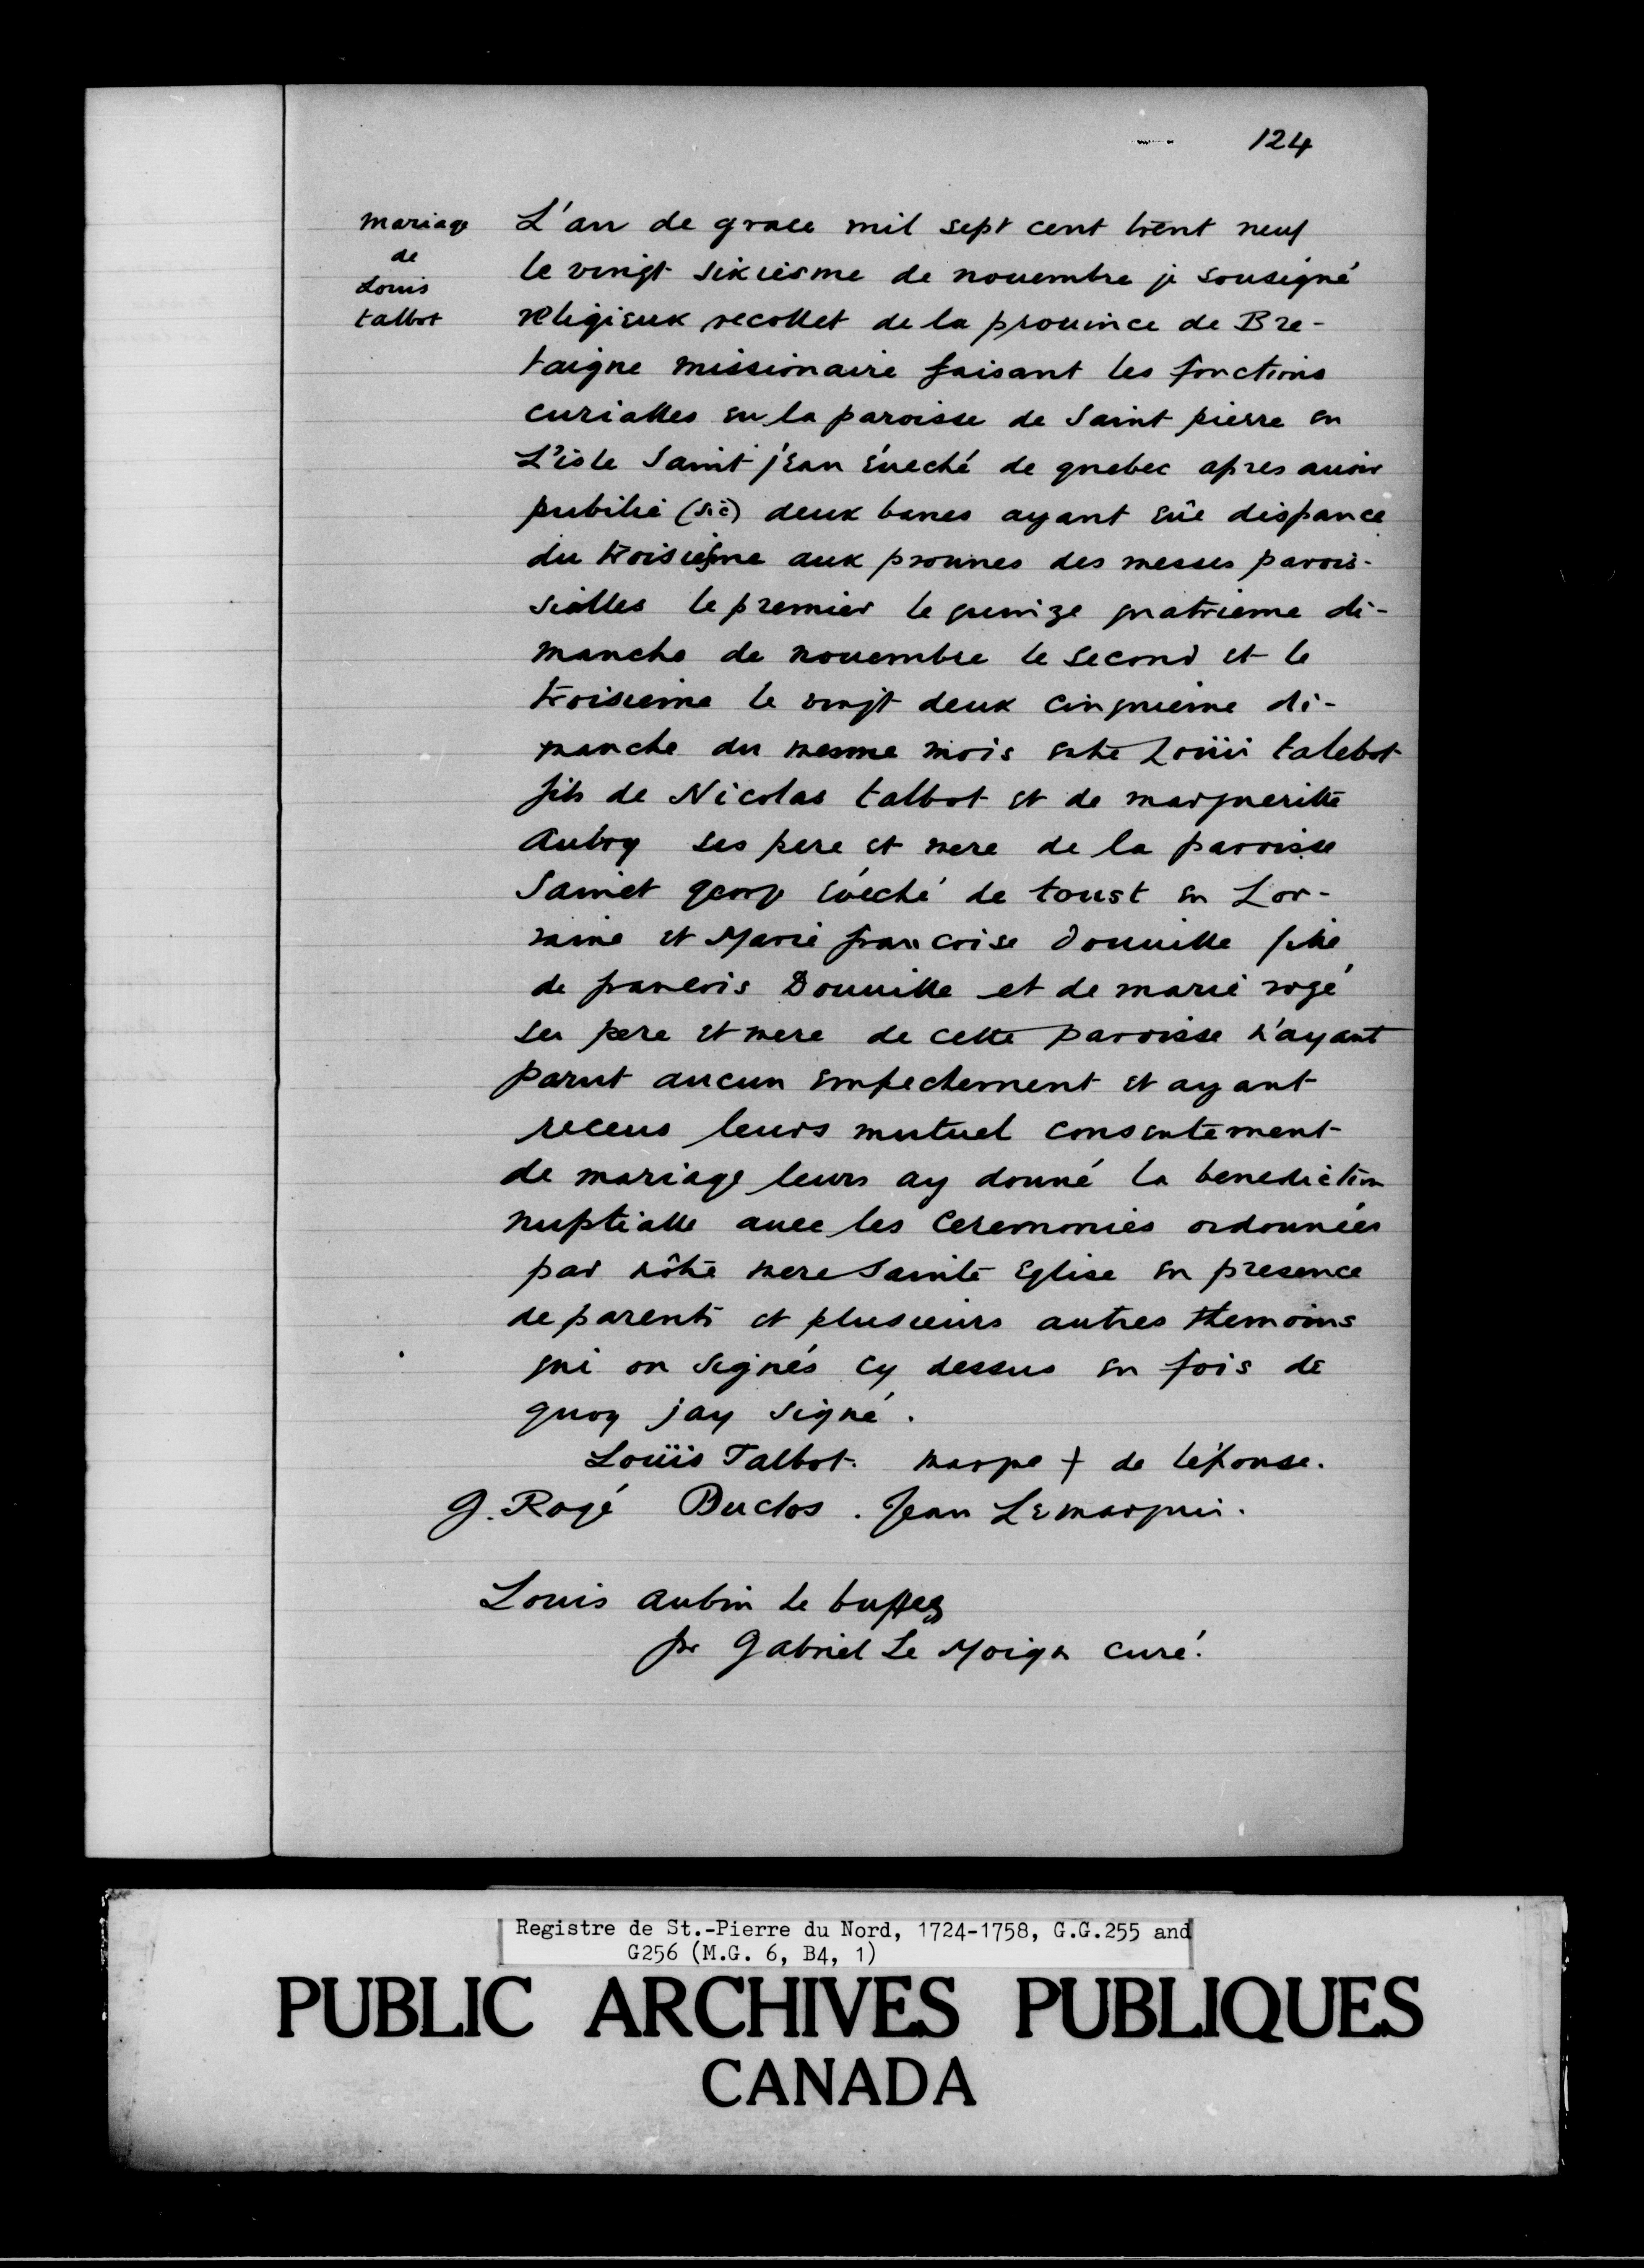 124
mariage
de
Louis
talbot
L'an de grace mil sept cent trent neuf
le vingt sixiesme de nouembre je sousigné
religieux recollet de la prouince de Bre-
taigne missionaire faisant les fonctions
curialles en la paroisse de Saint pierre en
L'isle Saint jean éueché de quebec apres auoir
pubilié (sic) deux banes ayant eüe dispance
du troisiesme aux pronnes des messes parois-
sialles le premier le quinze quatrieme di-
manche de nouembre le second et le
troisieme le vingt deux cinquieme di-
manche du mesme mois entre Loüis talebot
fils de Nicolas talbot et de margueritte
Aubry ses pere et mere de la paroisse
Sainct georg évéché de toust en Lor-
raine et Marie francoise douuille fille
de francois Douuille et de marie rogé
ses pere et mere de cette paroisse n'ayant
parut aucun empechement et ayant
receus leurs mutuel consentement
de mariage leurs ay donné la benediction
nuptialle auec les ceremonies ordonnées
par nôtre mere Sainte Eglise en presence
de parents et plusieurs autres themoins
qui on signés cy dessus en fois de
quoy jay signé.
Loüis Talbot. marque + de l'épouse.
G. Rogé Duclos. Jean Lemarquis.
Louis aubin le buffes
fr Gabriel Le Moign curé.
Registre de St.-Pierre du Nord, 1724-1758, G.G.255 and
G256 (M.G. 6, B4, 1)
PUBLIC ARCHIVES PUBLIQUES
CANADA